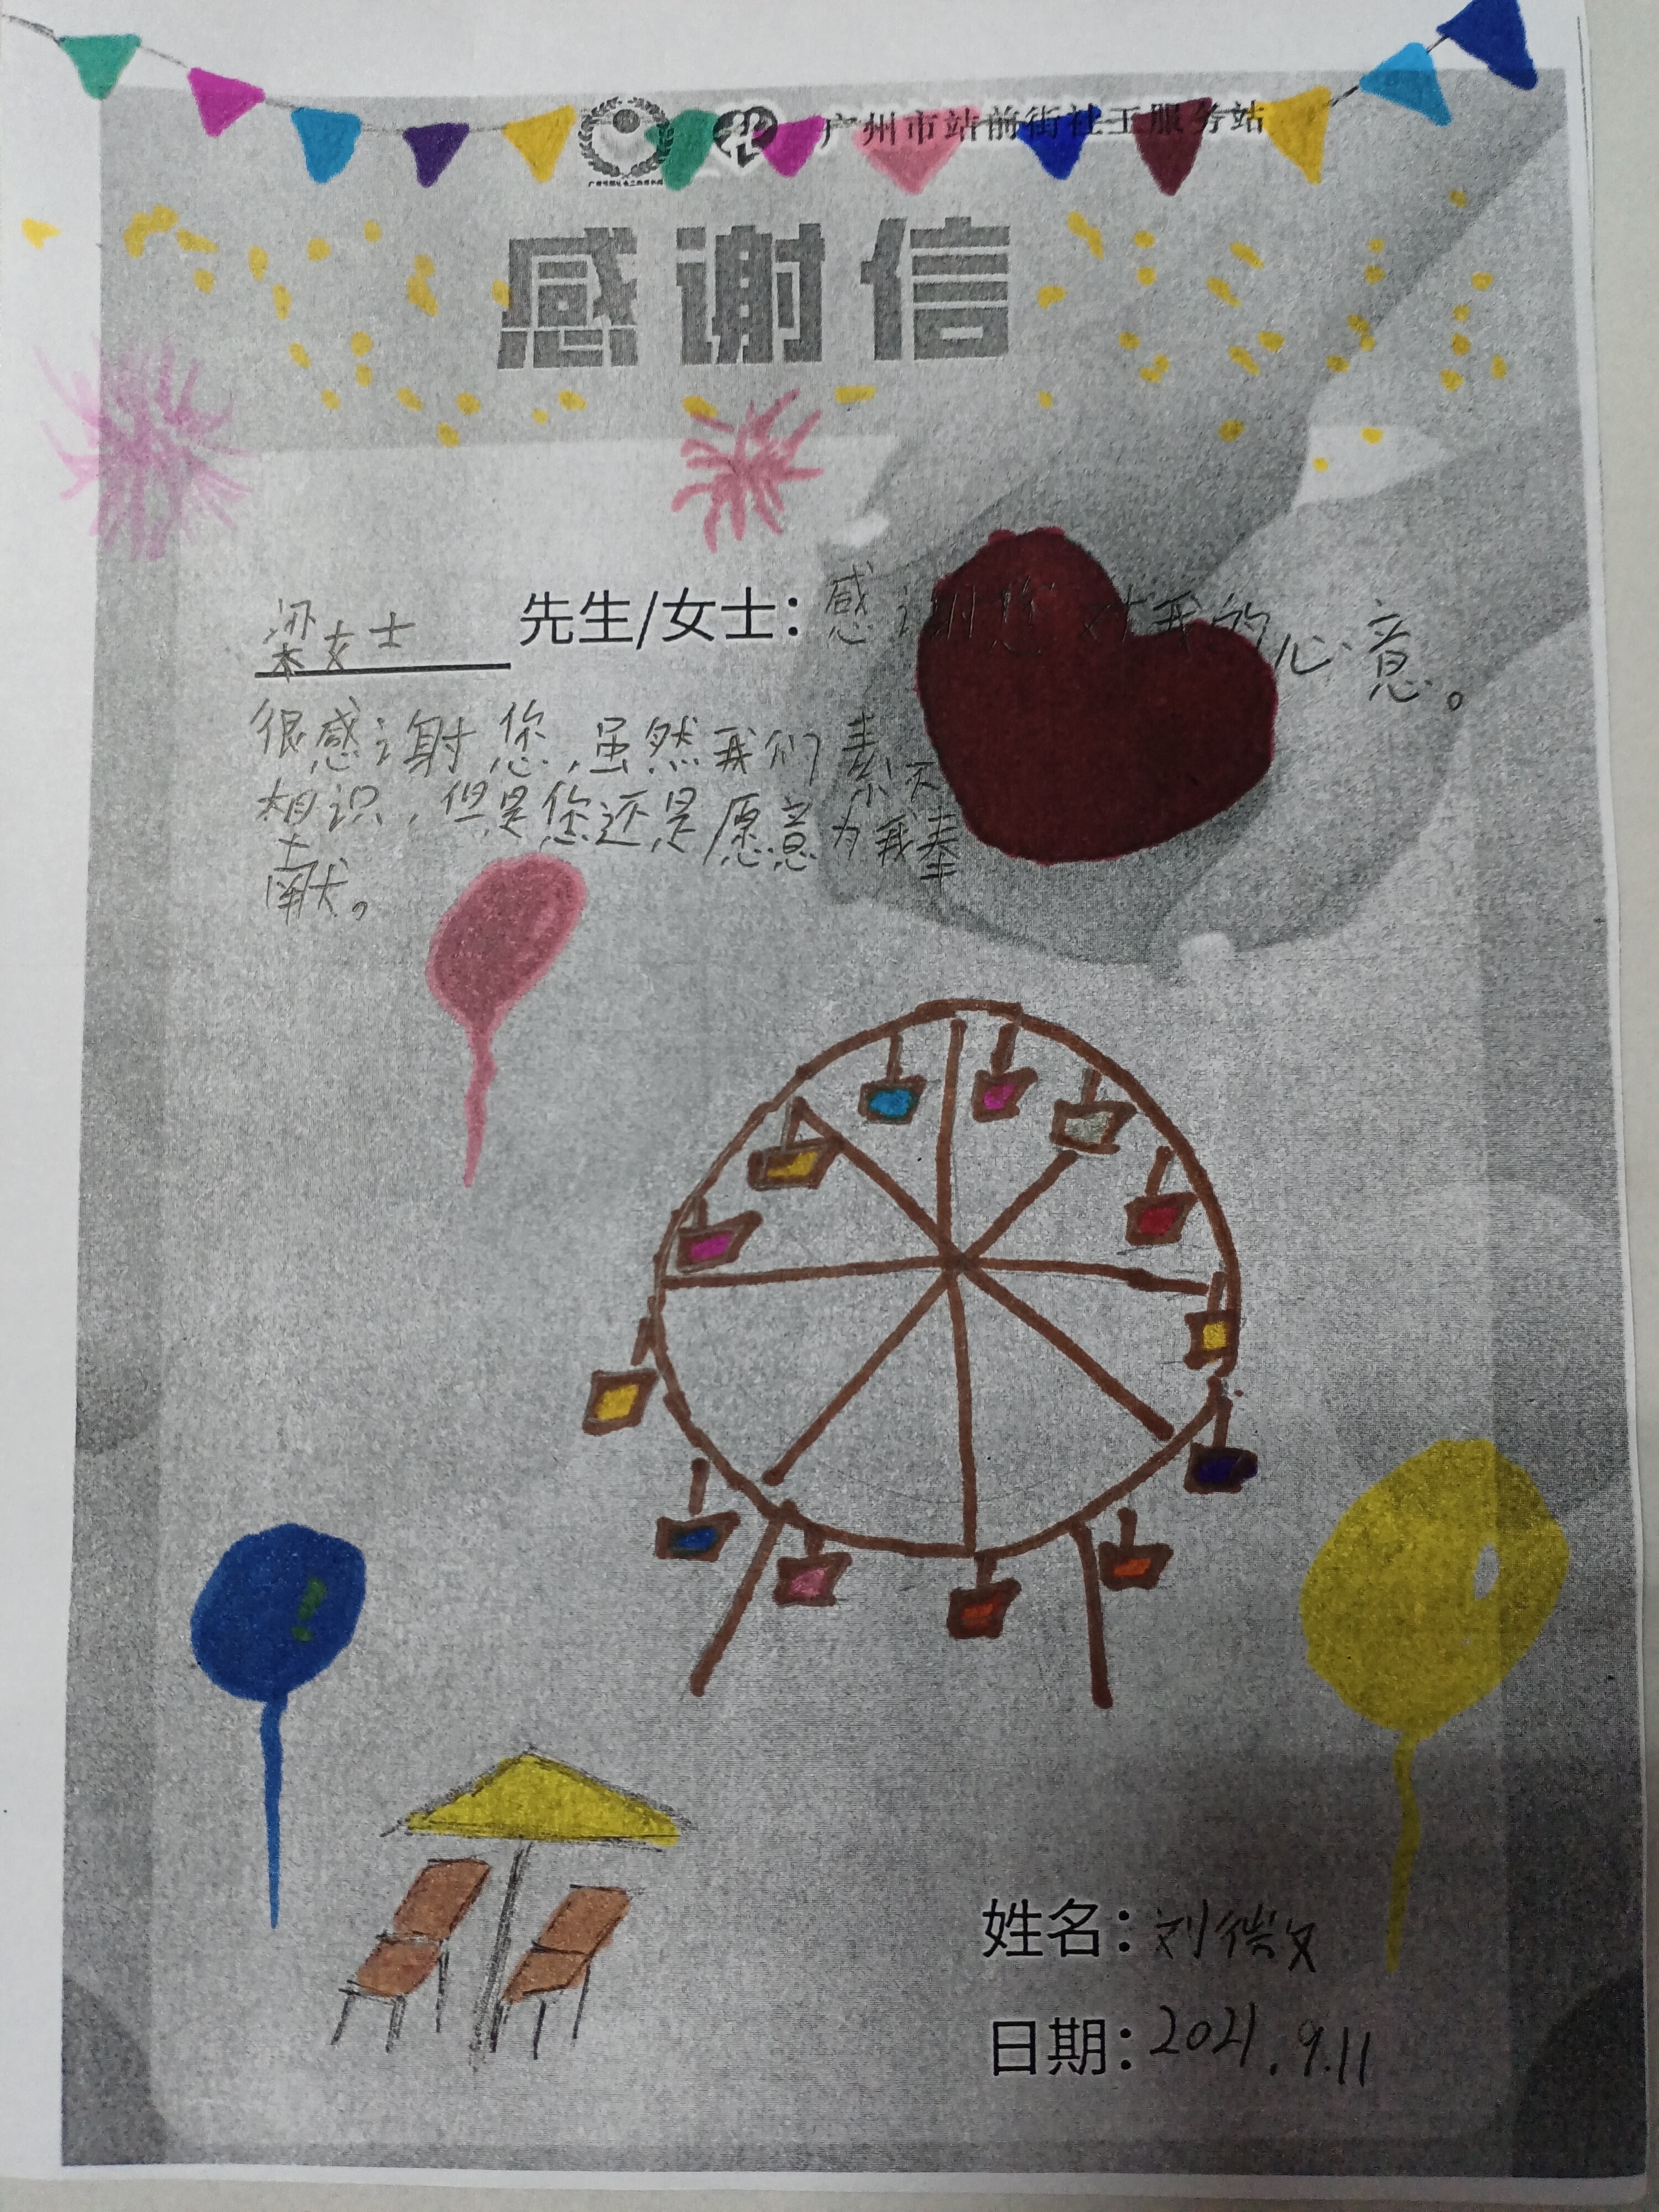 广州市站前街社工服务站
感谢信
梁女士 先生/女士：感谢您对我的心意。
很感谢您，虽然我们素不
相识，但是您还是愿意为我奉
献。
姓名：刘
日期：2021.9.11